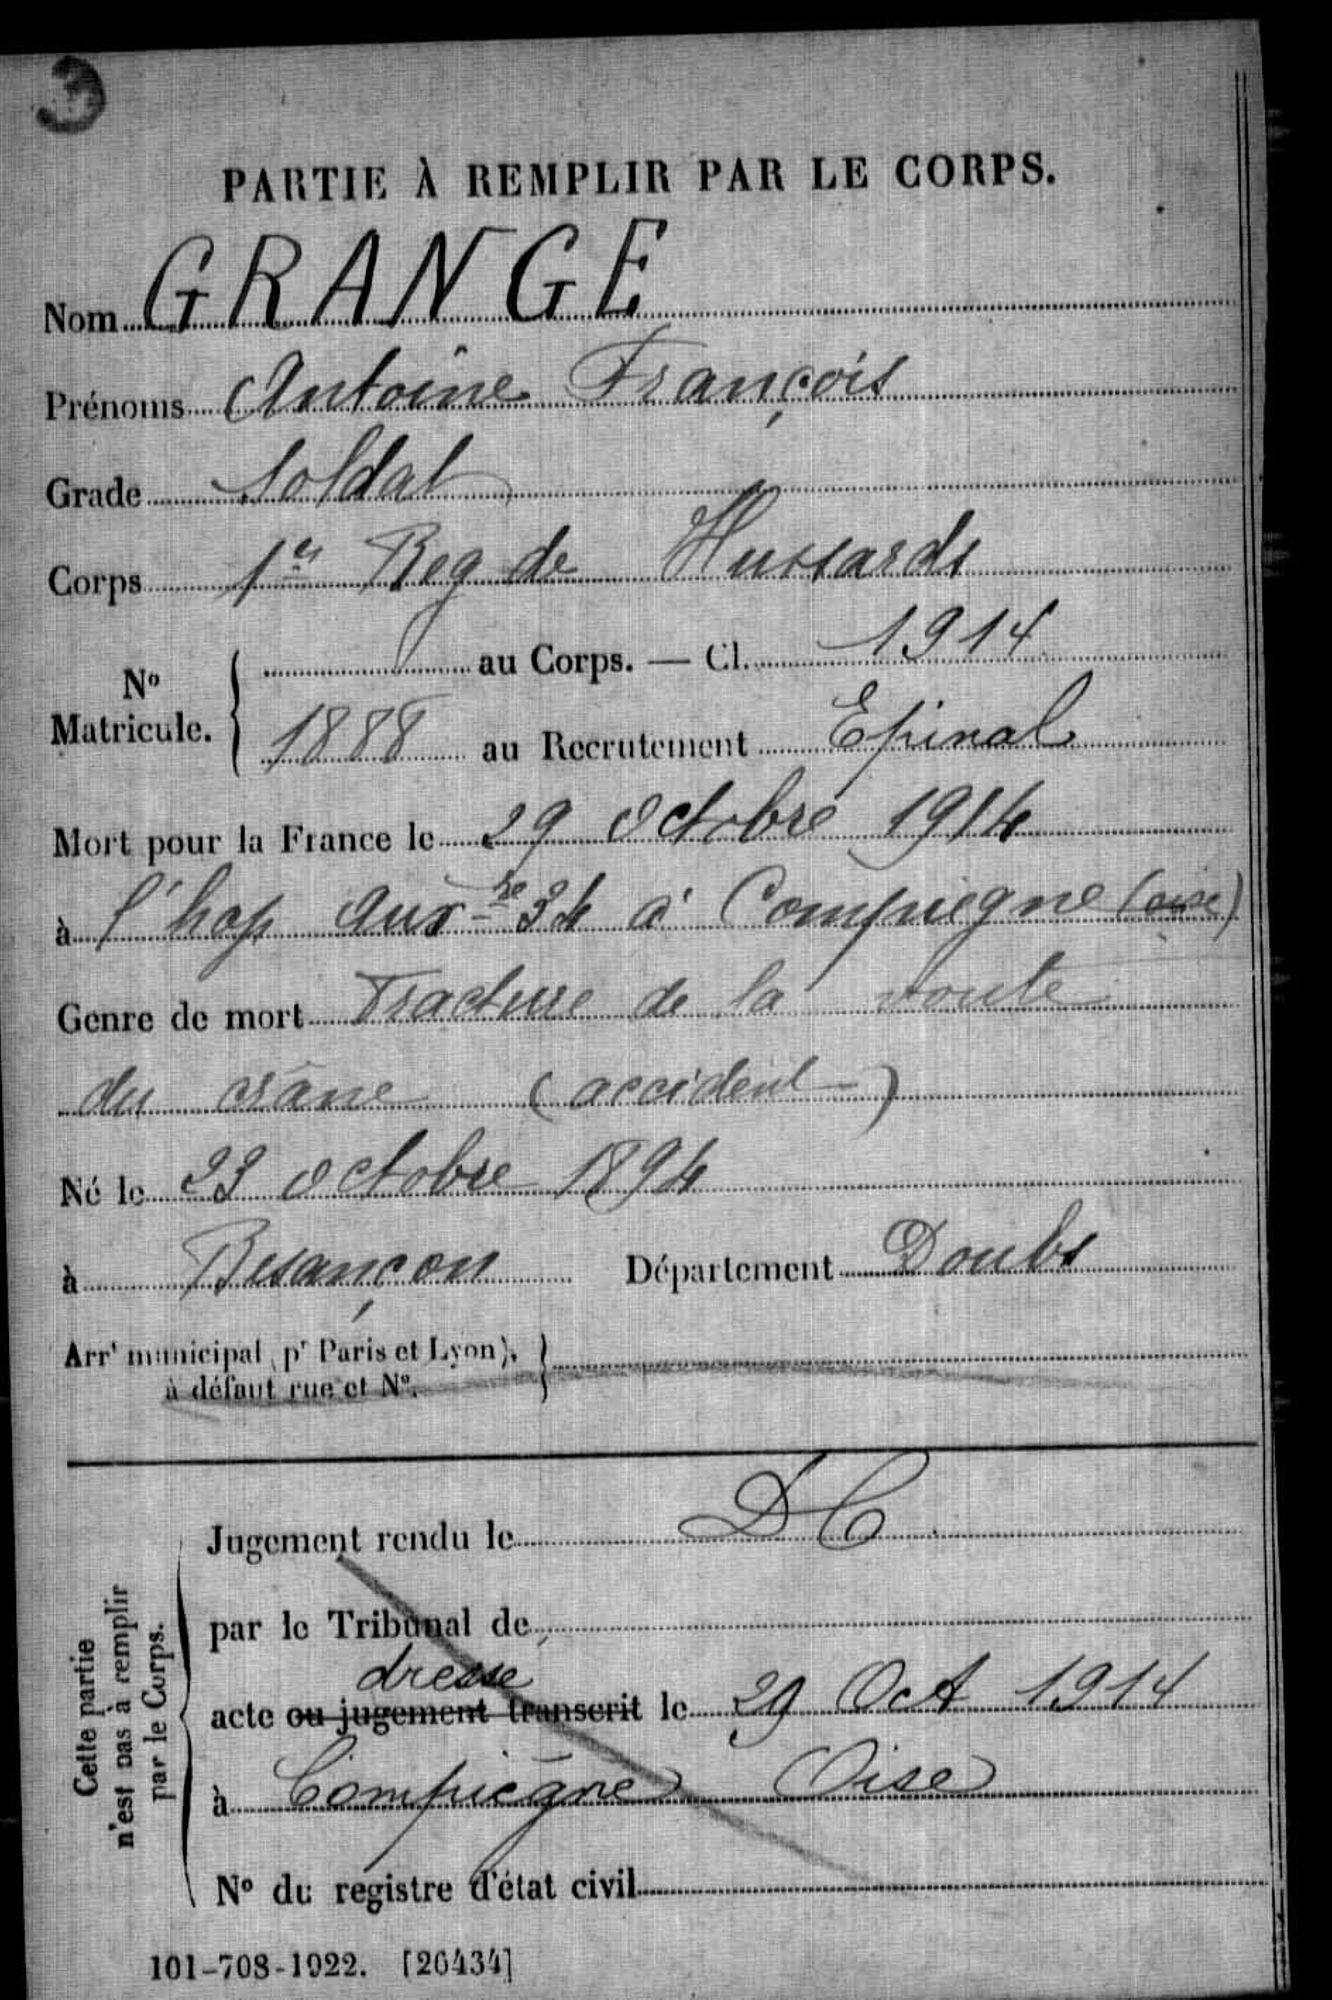 3
PARTIE À REMPLIR PAR LE CORPS.
Nom GRANGE
Prénoms Antoine François
Grade Soldat
Corps 1er Reg de Hussards
au Corps. — Cl. 1914
N° Matricule. 1888 au Recrutement Epinal
Mort pour la France le 29 Octobre 1914
à l'hop auxre 34 à Compiegne (Oise)
Genre de mort Fracture de la voute
du crâne (accident)
Né le 23 octobre 1894
à Besançon Département Doubs
Arrt municipal (pr Paris et Lyon),
à défaut rue et N°.
Cette partie
n'est pas à remplir
par le Corps.
Jugement rendu le DC
par le Tribunal de
dresse
acte ou jugement transcrit le 29 Oct 1914
à Compiègne Oise
N° du registre d'état civil
101-708-1922. [26434]